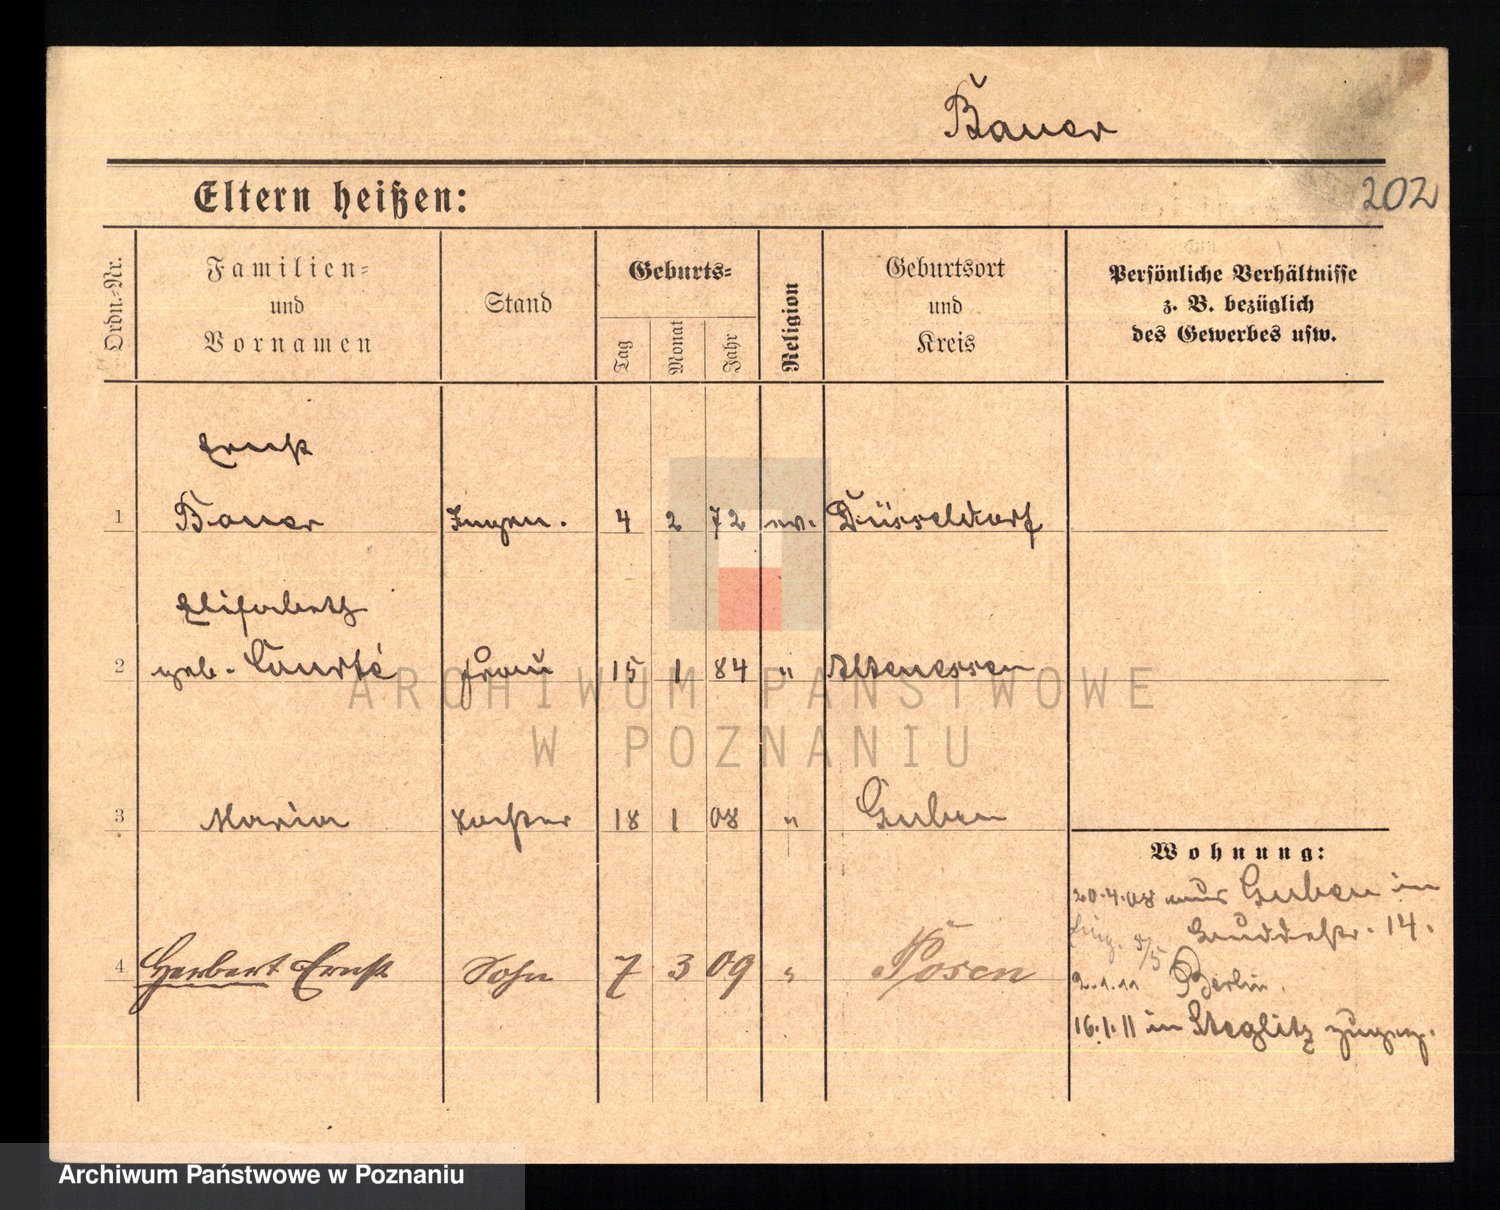 Bauer
202
Eltern heißen:
Ordn.-Nr.
Familien-
und
Vornamen
Stand
Geburts-
Tag
Monat
Jahr
Religion
Geburtsort
und
Kreis
Persönliche Verhältnisse
z. B. bezüglich
des Gewerbes usw.
Ernst
1 Bauer Ingen. 4 2 72 ev. Düsseldorf
Elisabeth
2 geb. Frau 15 1 84 " Altenessen
3 Maria Tochter 18 1 08 " Guben
Wohnung:
20.4.08 aus Guben in
14.
4 Herbert Ernst Sohn 7 3 09 " Posen
2.1.11 Berlin.
16.1.11 in Steglitz zugez.
ARCHIWUM PAŃSTWOWE
W POZNANIU
Archiwum Państwowe w Poznaniu